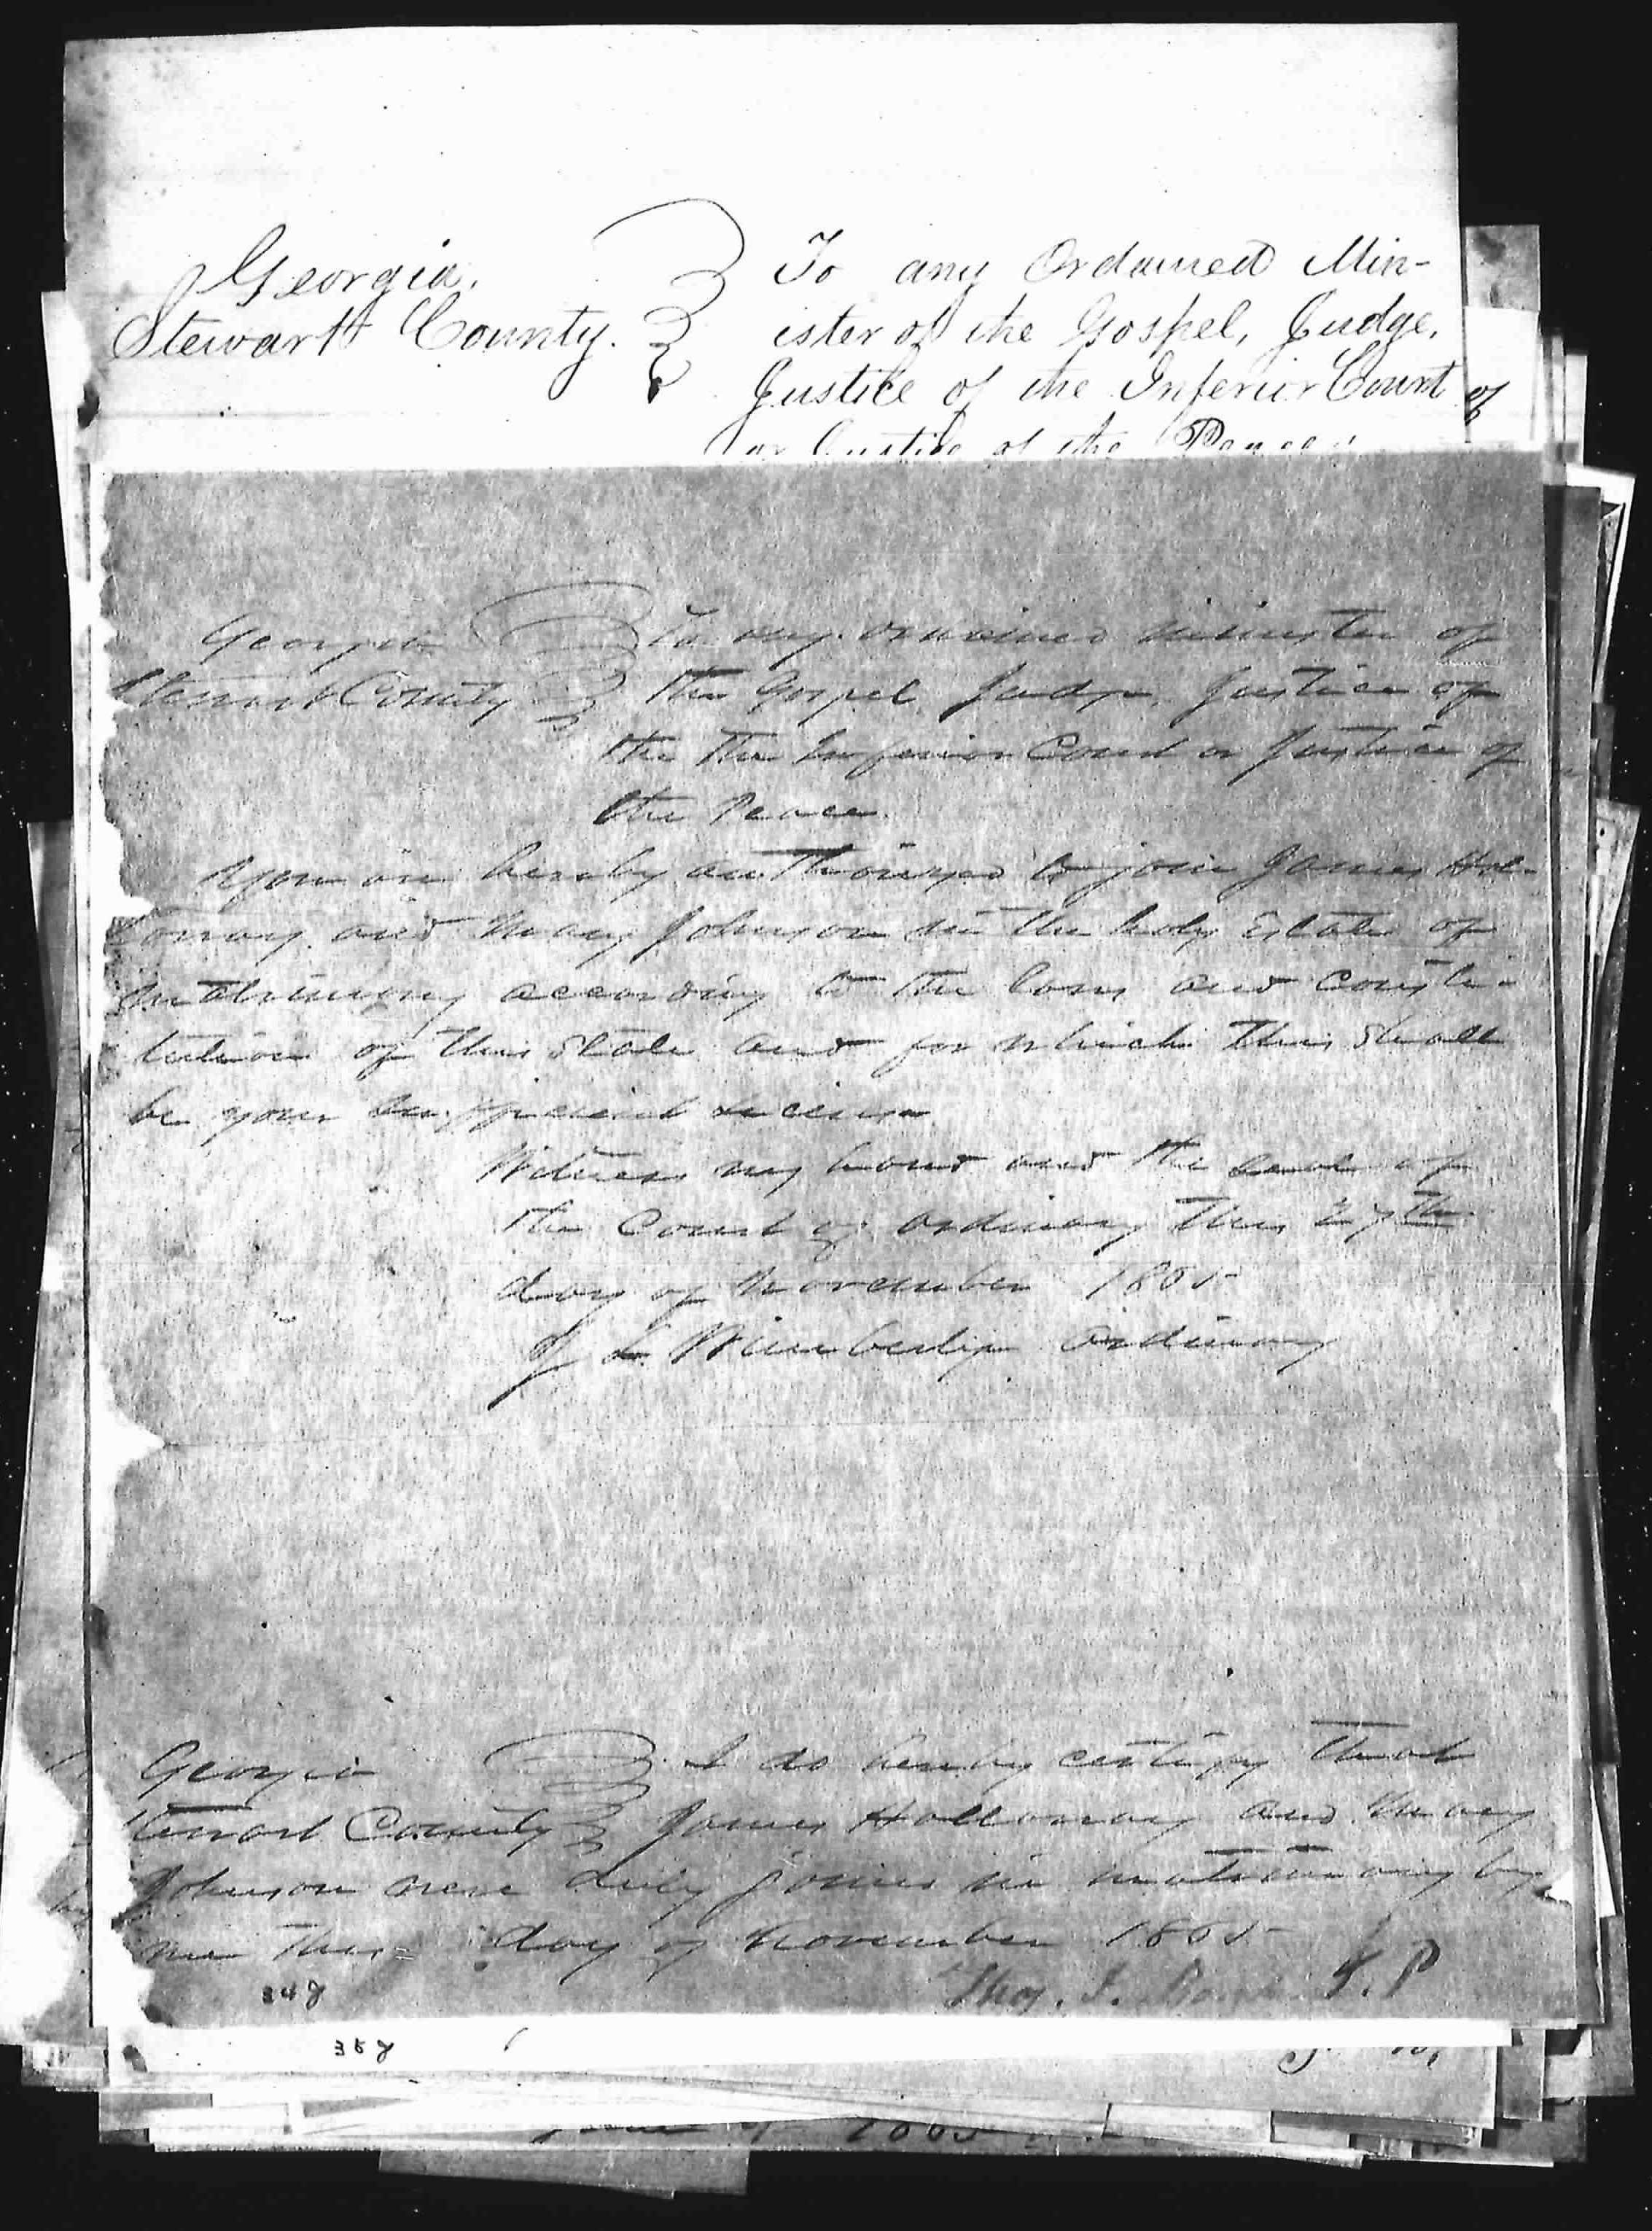 Georgia.
Stewart County.
To any Ordained Min-
ister of the Gospel, Judge,
Justice of the Inferior Court
or Justice of the Peace
of
Georgia
Stewart County
To any ordained minister of
the Gospel Judge, Justice of
the The Inferior Court or Justice of
the Peace
You are hereby authorized to join James Hol-
loway and Mary Johnson in the holy Estate of
matrimony according to the laws and consti-
tution of this State and for which this shall
be your sufficient License
Witness my hand and the seal of
the Court of ordinary this 27th
day of November 1865
J L Wimberly Ordinary
Georgia
Stewart County
I do hereby certify that
James Holloway and Mary
Johnson were duly joined in matrimony by
me this day of November 1865
Thos. J. J.P
348
358
1865